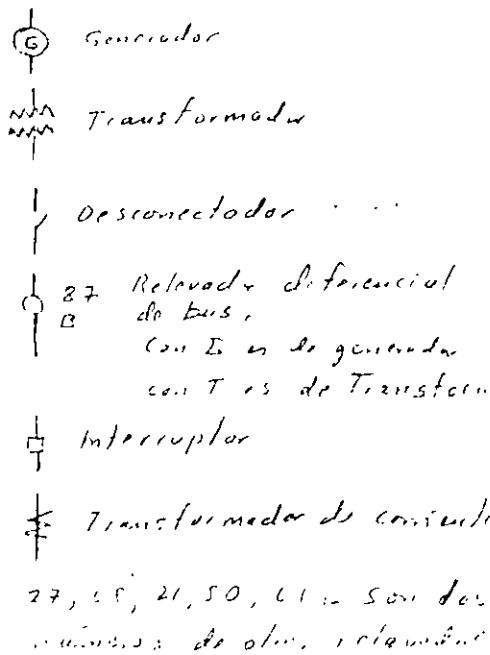 G Generador
Transformador
Desconectador
87 Relevador diferencial
B de bus,
con G es de generador
con T es de Transform
Interruptor
Transformador de corriente
27, 21, 50, son dos
números de otros